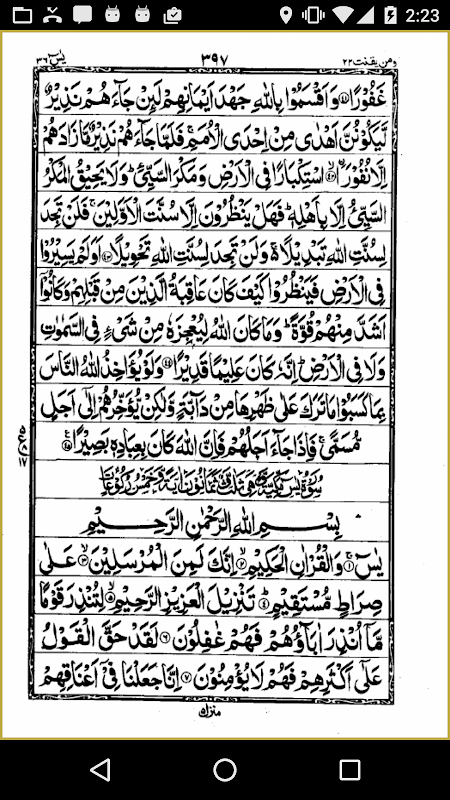 2:23
ومن یقنت ۲۲
۳۹۷
یٰسٓ ۳۶
غَفُوْرًا ﴿۴۱﴾ وَاَقْسَمُوْا بِاللّٰهِ جَهْدَ اَیْمَانِهِمْ لَىِٕنْ جَآءَهُمْ نَذِیْرٌ
لَّیَكُوْنُنَّ اَهْدٰی مِنْ اِحْدَی الْاُمَمِ ۚ فَلَمَّا جَآءَهُمْ نَذِیْرٌ مَّا زَادَهُمْ
اِلَّا نُفُوْرًا ﴿۴۲﴾ اسْتِكْبَارًا فِی الْاَرْضِ وَمَكْرَ السَّیِّئِ ؕ وَلَا یَحِیْقُ الْمَكْرُ
السَّیِّئُ اِلَّا بِاَهْلِهٖ ؕ فَهَلْ یَنْظُرُوْنَ اِلَّا سُنَّتَ الْاَوَّلِیْنَ ۚ فَلَنْ تَجِدَ
لِسُنَّتِ اللّٰهِ تَبْدِیْلًا ۚ۬ وَلَنْ تَجِدَ لِسُنَّتِ اللّٰهِ تَحْوِیْلًا ﴿۴۳﴾ اَوَلَمْ یَسِیْرُوْا
فِی الْاَرْضِ فَیَنْظُرُوْا كَیْفَ كَانَ عَاقِبَةُ الَّذِیْنَ مِنْ قَبْلِهِمْ وَكَانُوْۤا
اَشَدَّ مِنْهُمْ قُوَّةً ؕ وَمَا كَانَ اللّٰهُ لِیُعْجِزَهٗ مِنْ شَیْءٍ فِی السَّمٰوٰتِ
وَلَا فِی الْاَرْضِ ؕ اِنَّهٗ كَانَ عَلِیْمًا قَدِیْرًا ﴿۴۴﴾ وَلَوْ یُؤَاخِذُ اللّٰهُ النَّاسَ
بِمَا كَسَبُوْا مَا تَرَكَ عَلٰی ظَهْرِهَا مِنْ دَآبَّةٍ وَّلٰكِنْ یُّؤَخِّرُهُمْ اِلٰۤی اَجَلٍ
مُّسَمًّی ۚ فَاِذَا جَآءَ اَجَلُهُمْ فَاِنَّ اللّٰهَ كَانَ بِعِبَادِهٖ بَصِیْرًا ﴿۴۵﴾
سُوْرَةُ یٰسٓ مَكِّیَّةٌ وَّهِیَ ثَلٰثٌ وَّثَمَانُوْنَ اٰیَةً وَّخَمْسُ رُكُوْعَاتٍ
بِسْمِ اللّٰهِ الرَّحْمٰنِ الرَّحِیْمِ
یٰسٓ ﴿۱﴾ وَالْقُرْاٰنِ الْحَكِیْمِ ﴿۲﴾ اِنَّكَ لَمِنَ الْمُرْسَلِیْنَ ﴿۳﴾ عَلٰی
صِرَاطٍ مُّسْتَقِیْمٍ ﴿۴﴾ تَنْزِیْلَ الْعَزِیْزِ الرَّحِیْمِ ﴿۵﴾ لِتُنْذِرَ قَوْمًا
مَّاۤ اُنْذِرَ اٰبَآؤُهُمْ فَهُمْ غٰفِلُوْنَ ﴿۶﴾ لَقَدْ حَقَّ الْقَوْلُ
عَلٰۤی اَكْثَرِهِمْ فَهُمْ لَا یُؤْمِنُوْنَ ﴿۷﴾ اِنَّا جَعَلْنَا فِیْۤ اَعْنَاقِهِمْ
منزل ۵